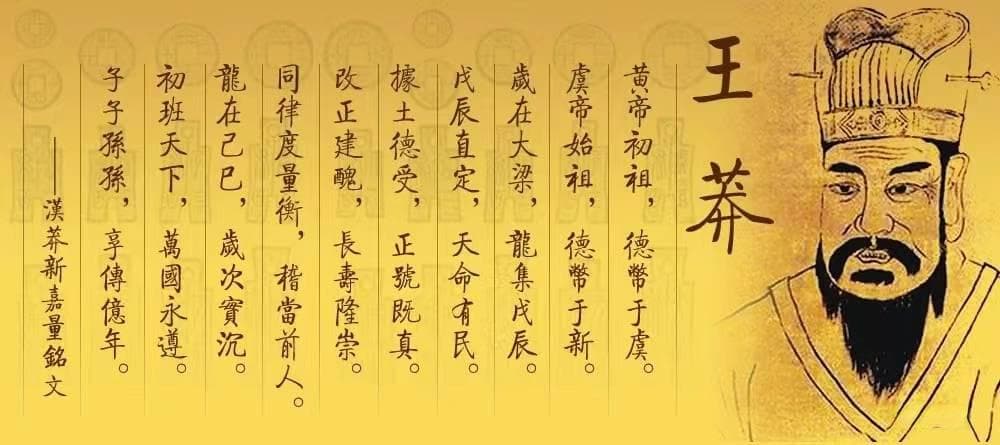 王莽
黄帝初祖，德幣于虞。
虞帝始祖，德幣于新。
歲在大梁，龍集戊辰。
戊辰直定，天命有民。
據土德受，正號既真。
改正建醜，長壽隆崇。
同律度量衡，稽當前人。
龍在己巳，歲次實沉。
初班天下，萬國永遵。
子子孫孫，享傳億年。
——漢莽新嘉量銘文